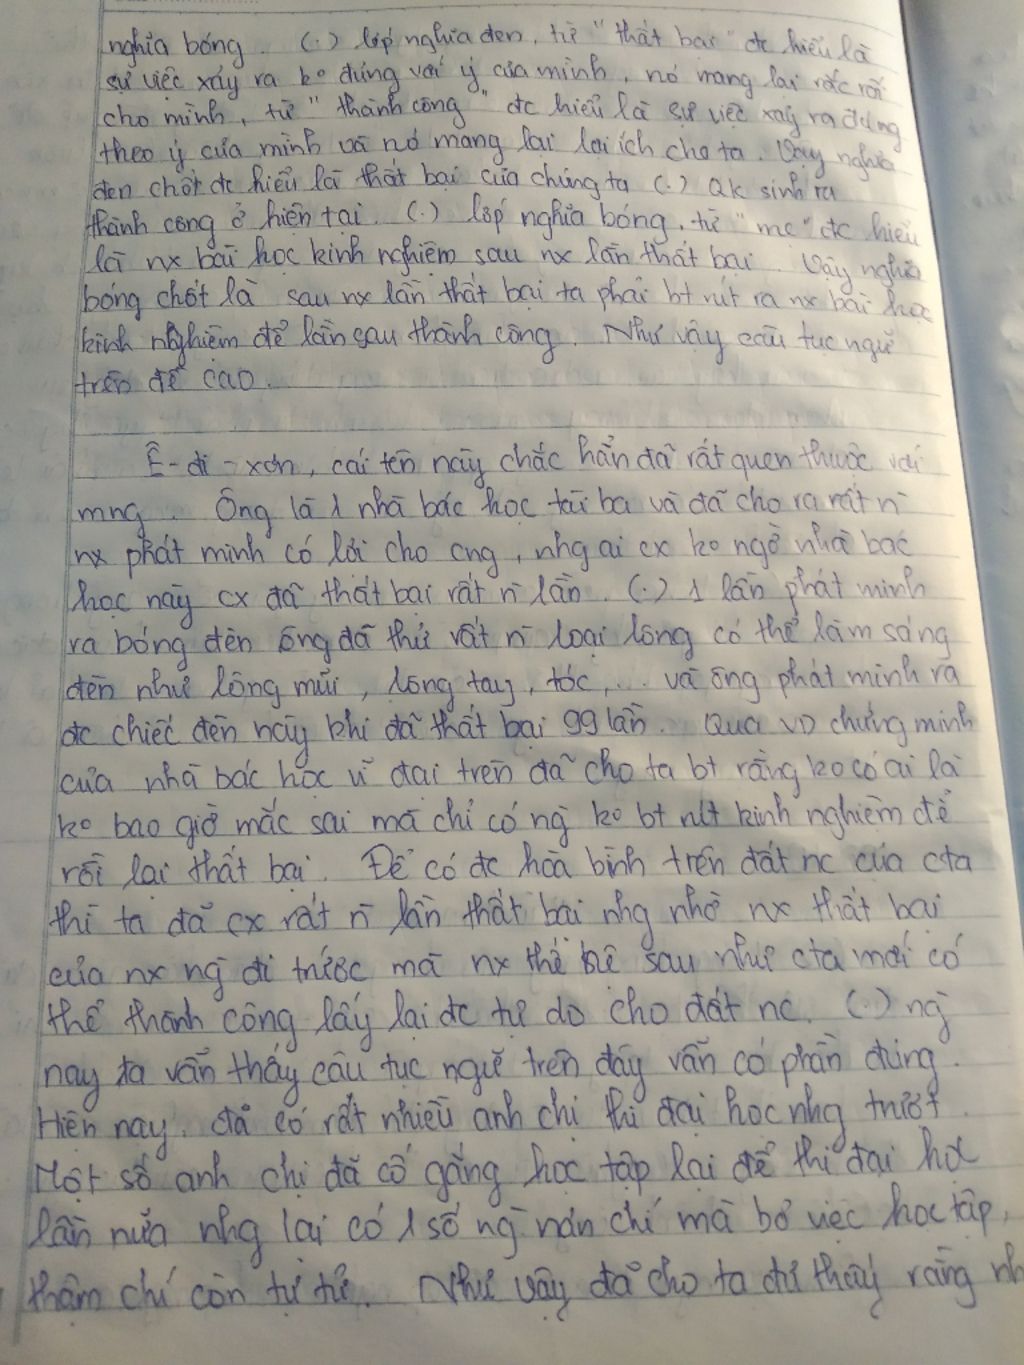 nghĩa bóng. (.) lớp nghĩa đen, từ "thất bại" đc hiểu là
sự việc xảy ra ko đúng với ý của mình, nó mang lại rắc rối
cho mình, từ "thành công" đc hiểu là sự việc xảy ra đúng
theo ý của mình và nó mang lại lợi ích cho ta. Vậy nghĩa
đen chốt đc hiểu là thất bại của chúng ta (.) qk sinh ra
thành công ở hiện tại. (.) lớp nghĩa bóng, từ "mẹ" đc hiểu
là nx bài học kinh nghiệm sau nx lần thất bại. Vậy nghĩa
bóng chốt là sau nx lần thất bại ta phải bt rút ra nx bài học
kinh nghiệm để lần sau thành công. Như vậy câu tục ngữ
trên đề cao.
Ê-đi-xơn, cái tên này chắc hẳn đã rất quen thuộc với
mng. Ông là 1 nhà bác học tài ba và đã cho ra rất n̄
nx phát minh có lợi cho cng, nhg ai cx ko ngờ nhà bác
học này cx đã thất bại rất n̄ lần. (.) 1 lần phát minh
ra bóng đèn ông đã thử rất n̄ loại lông có thể làm sáng
đèn như lông mũi, lông tay, tóc,... và ông phát minh ra
đc chiếc đèn này khi đã thất bại 99 lần. Qua VD chứng minh
của nhà bác học vĩ đại trên đã cho ta bt rằng ko có ai là
ko bao giờ mắc sai mà chỉ có ng̀ ko bt rút kinh nghiệm để
rồi lại thất bại. Để có đc hoà bình trên đất nc của cta
thì ta đã cx rất n̄ lần thất bại nhg nhờ nx thất bại
của nx ng̀ đi trước mà nx thế hệ sau như cta mới có
thể thành công lấy lại đc tự do cho đất nc. (.) ng̀
nay ta vẫn thấy câu tục ngữ trên đây vẫn có phần đúng.
Hiện nay, đã có rất nhiều anh chị thi đại học nhg trượt.
Một số anh chị đã cố gắng học tập lại để thi đại học
lần nữa nhg lại có 1 số ng̀ nản chí mà bỏ việc học tập,
thậm chí còn tự tử. Như vậy đã cho ta thấy rằng